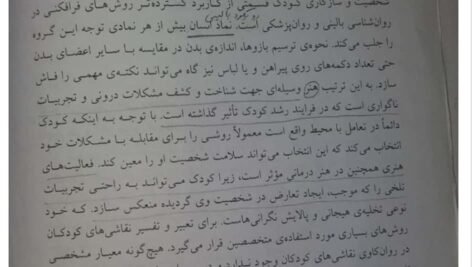 شخصیت و سازگاری کودک قسمتی از کاربرد گسترده‌تر روش‌های فرافکنی در
روان‌شناسی بالینی و روان‌پزشکی است. نماد انسان بیش از هر نمادی توجه این گروه
را جلب می‌کند. نحوه‌ی ترسیم بازوها، اندازه‌ی بدن در مقایسه با سایر اعضای بدن و
حتی تعداد دکمه‌های روی پیراهن و یا لباس نیز گاه می‌تواند نکته‌ی مهمی را فاش
سازد. به این ترتیب هنر وسیله‌ای جهت شناخت و کشف مشکلات درونی و تجربیات
ناگواری است که در فرایند رشد کودک تأثیر گذاشته است. با توجه به اینکه کودک
دائماً در تعامل با محیط واقع است معمولاً روشی را برای مقابله با مشکلات خود
انتخاب می‌کند که این انتخاب می‌تواند سلامت شخصیت او را معین کند. فعالیت‌های
هنری همچنین در هنر درمانی مؤثر است، زیرا کودک می‌تواند به راحتی تجربیات
تلخی را که موجب، ایجاد تعارض در شخصیت وی گردیده منعکس سازد. که خود
نوعی تخلیه‌ی هیجانی و پالایش نگرانی‌هاست. برای تعبیر و تفسیر نقاشی‌های کودکان
روش‌های بسیاری مورد استفاده‌ی متخصصین قرار می‌گیرد. هیچ‌گونه معیار مشخصی
در روان‌کاوی نقاشی‌های کودکان وجود ندارد و